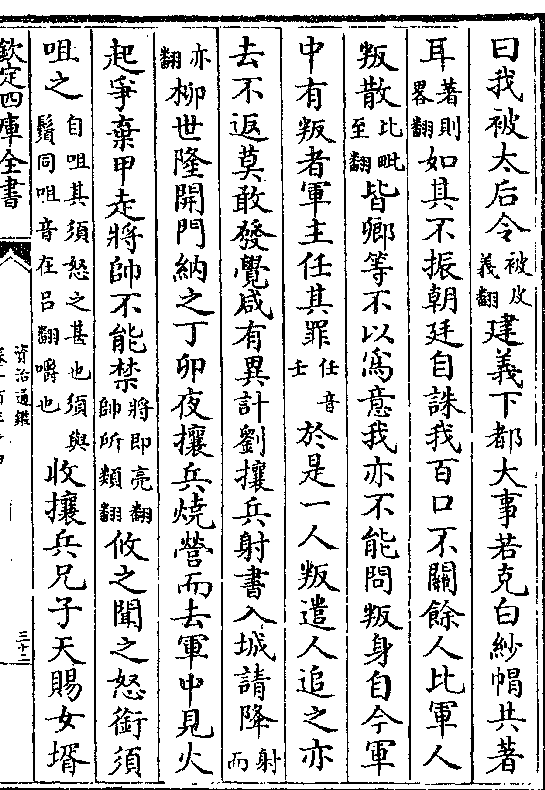 曰我被太后令被皮義翻建義下都大事若克白紗帽共著
耳著則畧翻如其不振朝廷自誅我百口不關餘人比軍人
叛散比毗至翻皆卿等不以為意我亦不能問叛身自今軍
中有叛者軍主任其罪任音士於是一人叛遣人追之亦
去不返莫敢發覺咸有異計劉攘兵射書入城請降射而
亦翻柳世隆開門納之丁卯夜攘兵燒營而去軍中見火
起爭棄甲走將帥不能禁將即亮翻帥所類翻攸之聞之怒銜須
咀之自咀其須怒之甚也須與鬚同咀音在呂翻嚼也收攘兵兄子天賜女壻
欽定四庫全書
資治通鑑
三十二